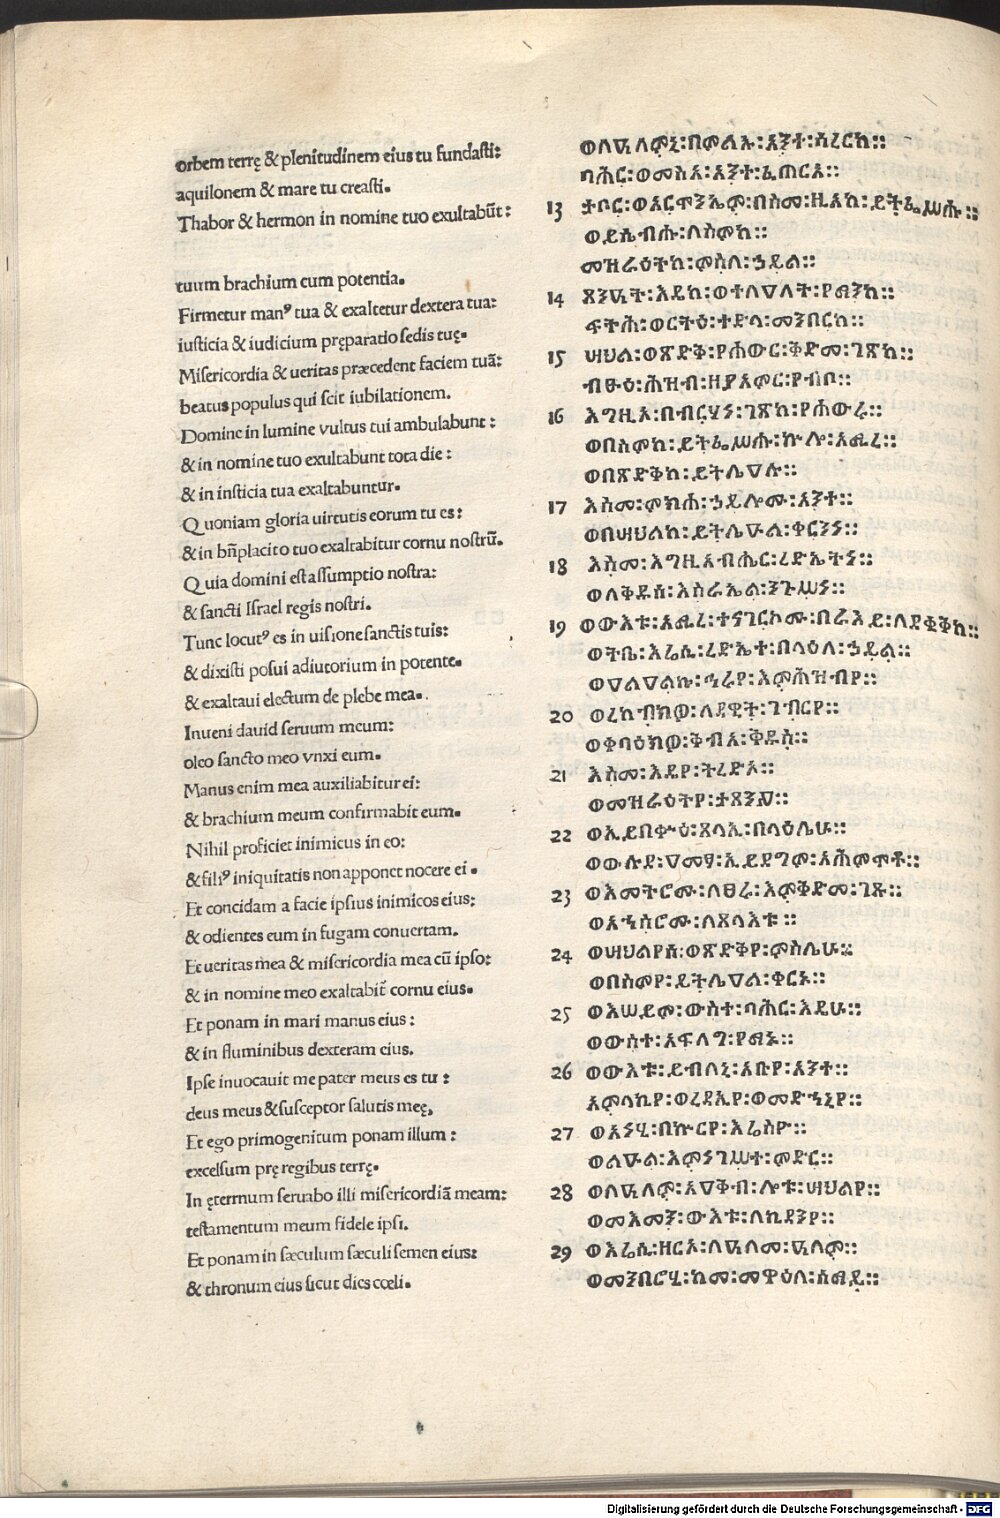 orbem terrę & plenitudinem eius tu fundasti:
aquilonem & mare tu creasti.
Thabor & hermon in nomine tuo exultabūt:
tuum brachium cum potentia.
Firmetur manꝰ tua & exaltetur dextera tua:
iusticia & iudicium pręparatio sedis tuę.
Misericordia & ueritas præcedent faciem tuā:
beatus populus qui scit iubilationem.
Domine in lumine vultus tui ambulabunt:
& in nomine tuo exultabunt tota die:
& in insticia tua exaltabuntur.
Quoniam gloria uirtutis eorum tu es:
& in bn̄placito tuo exaltabitur cornu nostrū.
Quia domini est assumptio nostra:
& sancti Israel regis nostri.
Tunc locutꝰ es in uisione sanctis tuis:
& dixisti posui adiutorium in potente.
& exaltaui electum de plebe mea.
Inueni dauid seruum meum:
oleo sancto meo vnxi eum.
Manus enim mea auxiliabitur ei:
& brachium meum confirmabit eum.
Nihil proficiet inimicus in eo:
& filiꝰ iniquitatis non apponet nocere ei.
Et concidam a facie ipsius inimicos eius:
& odientes eum in fugam conuertam.
Et ueritas mea & misericordia mea cū ipso:
& in nomine meo exaltabit̄ cornu eius.
Et ponam in mari manus eius:
& in fluminibus dexteram eius.
Ipse inuocauit me pater meus es tu:
deus meus & susceptor salutis meę,
Et ego primogenitum ponam illum:
excelsum prę regibus terrę.
In ęternum seruabo illi misericordiā meam:
testamentum meum fidele ipsi.
Et ponam in sæculum sæculi semen eius:
& thronum eius sicut dies cœli.
ወለዓለምኒ፡በምልኡ፡አንተ፡ሳረርከ።
ባሕር፡ወመስአ፡አንተ፡ፈጠርከ።
13 ታቦር፡ወአርሞንኤም፡በስመ፡ዚአከ፡ይትፌሥሑ።
ወይሴብሑ፡ለስምከ።
መዝራዕትከ፡ምስለ፡ኃይል።
14 ጸንዓት፡እዴከ፡ወተለዐለት፡የማንከ።
ፍትሕ፡ወርትዕ፡ተድላ፡መንበርከ።
15 ሣህል፡ወጽድቅ፡የሐውር፡ቅድመ፡ገጽከ።
ብፁዕ፡ሕዝብ፡ዘያአምር፡የብቦ።
16 እግዚአ፡በብርሃነ፡ገጽከ፡የሐውሩ።
ወበስምከ፡ይትፌሥሑ፡ኵሎ፡አሚረ።
ወበጽድቅከ፡ይትሌዐሉ።
17 እስመ፡ምክሐ፡ኃይሎሙ፡አንተ።
ወበሣህልከ፡ይትሌዑል፡ቀርንነ።
18 እስመ፡እግዚአብሔር፡ረድኤትነ።
ወለቅዱሰ፡እስራኤል፡ንጉሥነ።
19 ወውእቱ፡አሚረ፡ተናገርኮሙ፡በራእይ፡ለደቂቅከ።
ወትቤ፡እሬሲ፡ረድኤተ፡በላዕለ፡ኃይል።
ወዐልዐልኩ፡ኅሩየ፡እምሕዝብየ።
20 ወረከብክዎ፡ለዳዊት፡ገብርየ።
ወቀባዕክዎ፡ቅብአ፡ቅዱስ።
21 እስመ፡እዴየ፡ትረድኦ።
ወመዝራዕትየ፡ታጸንዖ።
22 ወኢይበቍዕ፡ጸላኢ፡በላዕሌሁ።
ወውሉደ፡ዐመፃ፡ኢይደግም፡አሕምሞቶ።
23 ወእመትሮሙ፡ለፀሩ፡እምቅድመ፡ገጹ።
ወአኀስሮሙ፡ለጸላእቱ።
24 ወሣህልየሰ፡ወጽድቅየ፡ምስሌሁ።
ወበስምየ፡ይትሌዐል፡ቀርኑ።
25 ወእሠይም፡ውስተ፡ባሕር፡እዴሁ።
ወውስተ፡አፍላግ፡የማኑ።
26 ወውእቱ፡ይብለኒ፡አቡየ፡አንተ።
አምላኪየ፡ወረዳኢየ፡ወመድኀኒየ።
27 ወአነሂ፡በኵርየ፡እሬስዮ።
ወልዑል፡እምነገሥተ፡ምድር።
28 ወለዓለም፡አዐቅብ፡ሎቱ፡ሣህልየ።
ወመእመን፡ውእቱ፡ለኪዳንየ።
29 ወእሬሲ፡ዘርኦ፡ለዓለመ፡ዓለም።
ወመንበሮሂ፡ከመ፡መዋዕለ፡ሰማይ።
Digitalisierung gefördert durch die Deutsche Forschungsgemeinschaft - DFG